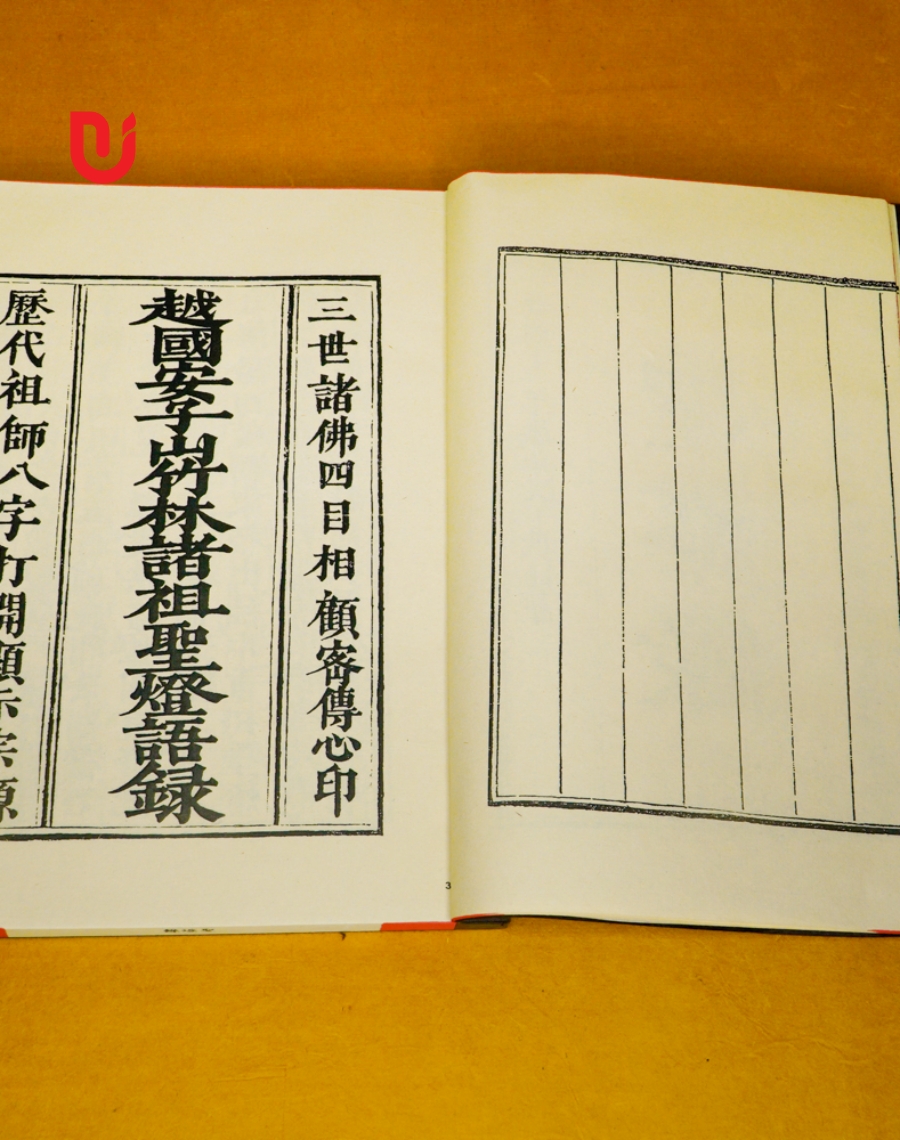 三世諸佛四目相顧宻傳心印
越國安子山竹林諸祖聖燈語録
歷代祖師八字打開顯示宗源
3